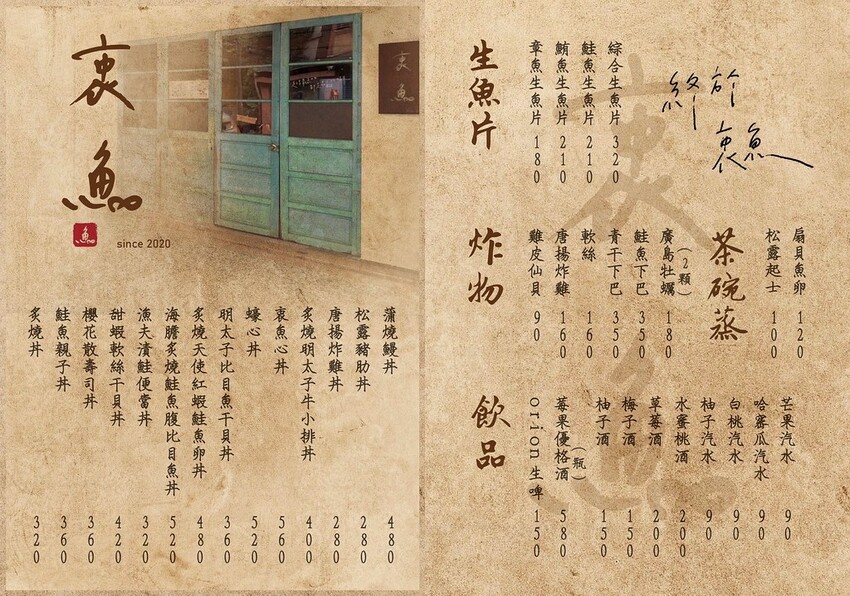 衷魚
魚
since 2020
衷魚
蒲燒鰻丼 480
松露豬肋丼 280
唐揚炸雞丼 280
炙燒明太子牛小排丼 400
衷魚心丼 560
蠔心丼 520
明太子比目魚干貝丼 360
炙燒天使紅蝦鮭魚卵丼 480
海膽炙燒鮭魚腹比目魚丼 520
漁夫漬鮭便當丼 320
甜蝦軟絲干貝丼 420
櫻花散壽司丼 360
鮭魚親子丼 360
炙燒丼 320
終於
衷魚
生魚片
綜合生魚片 320
鮭魚生魚片 210
鮪魚生魚片 210
章魚生魚片 180
茶碗蒸
扇貝魚卵 120
松露起士 100
炸物
廣島牡蠣(2顆) 180
鮭魚下巴 350
青干下巴 350
軟絲 160
唐揚炸雞 160
雞皮仙貝 90
飲品
芒果汽水 90
哈蜜瓜汽水 90
白桃汽水 90
柚子汽水 90
水蜜桃酒 200
草莓酒 200
梅子酒 150
柚子酒 150
莓果優格酒(瓶) 580
orion生啤 150